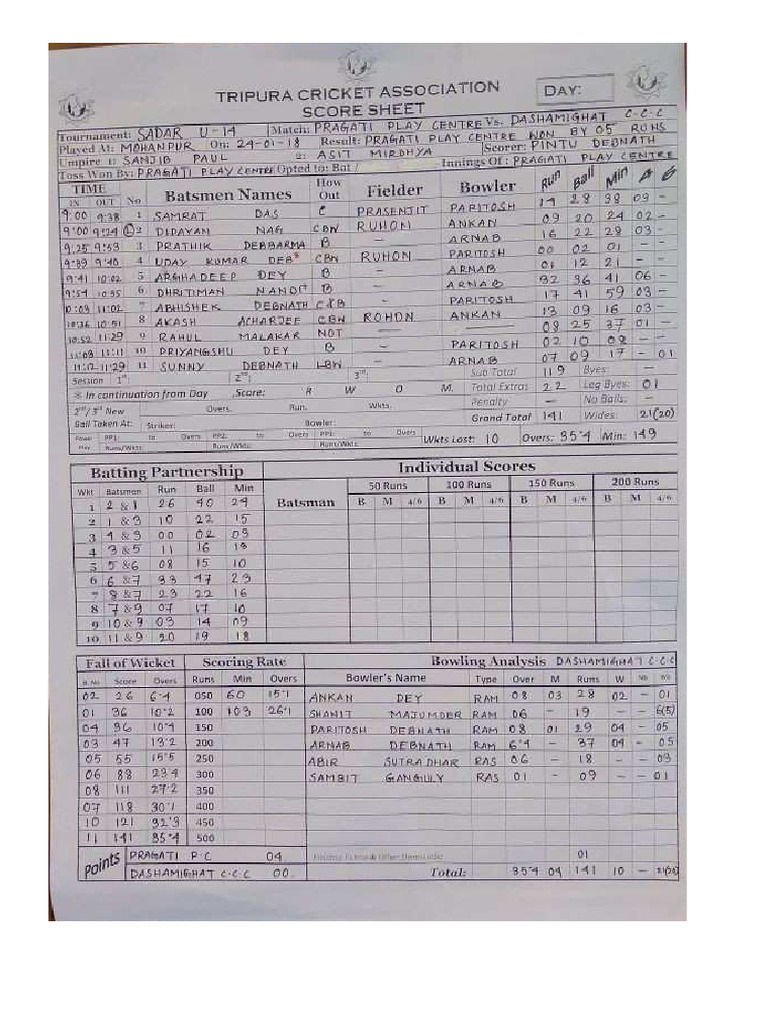 TRIPURA CRICKET ASSOCIATION
SCORE SHEET
DAY:
Tournament: SADAR U-14 Match: PRAGATI PLAY CENTRE Vs. DASHAMIGHAT C.C.C
Played At: MOHANPUR On: 24-01-18 Result: PRAGATI PLAY CENTRE WON BY 05 RUNS
Umpire 1: SANJIB PAUL 2: ASIT MIRDHYA Scorer: PINTU DEBNATH
Toss Won By: PRAGATI PLAY CENTRE Opted to: Bat / Innings Of: PRAGATI PLAY CENTRE
TIME IN OUT No Batsmen Names How Out Fielder Bowler Run Ball Min 4 6
9:00 9:38 1 SAMRAT DAS C PRASENJIT PARITOSH 19 28 38 03 -
9:00 9:24 2 DIPAYAN NAG CBN RUHON ANKAN 09 20 24 02 -
9:25 9:53 3 PRATHIK DEBBARMA B - ARNAB 16 22 28 03 -
9:39 9:40 4 UDAY KUMAR DEB CBN RUHON PARITOSH 00 02 01 - -
9:41 10:02 5 ARGHADEEP DEY B - ARNAB 01 12 21 - -
9:54 10:35 6 DHRITIMAN NANDI B - ARNAB 32 36 41 06 -
10:03 11:02 7 ABHISHEK DEBNATH C&B PARITOSH 17 41 59 03 -
10:36 10:51 8 AKASH ACHARJEE CBN ROHON ANKAN 13 09 16 03 -
10:52 11:29 9 RAHUL MALAKAR NOT - 08 25 37 01 -
11:03 11:11 10 PRIYANGSHU DEY B - PARITOSH 02 10 08 - -
11:12 11:29 11 SUNNY DEBNATH LBW - ARNAB 07 09 17 - 01
Session 1st: 2nd: 3rd: Sub Total 119 Byes: -
In continuation from Day Score: R W O M. Total Extras 22 Leg Byes: 01
2nd / 3rd New Overs. Run. Wkts. Penalty - No Balls: -
Ball Taken At: Striker: Bowler: Grand Total 141 Wides: 21(20)
Power Play PP1: to Overs PP2: to Overs PP3: to Overs Wkts Lost: 10 Overs: 35.4 Min: 149
Runs/Wkts: Runs/Wkts: Runs/Wkts:
Batting Partnership
Wkt Batsmen Run Ball Min
1 2 & 1 26 40 24
2 1 & 3 10 22 15
3 4 & 3 00 02 03
4 3 & 5 11 16 13
5 5 & 6 08 15 10
6 6 & 7 33 47 23
7 8 & 7 23 22 16
8 7 & 9 07 17 10
9 10 & 9 03 14 09
10 11 & 9 20 19 18
Individual Scores
Batsman 50 Runs 100 Runs 150 Runs 200 Runs
B M 4/6 B M 4/6 B M 4/6 B M 4/6
Fall of Wicket
B.No Score Overs
02 26 6.4
01 36 10.2
04 36 10.4
03 47 13.2
05 55 15.5
06 88 23.4
08 111 27.2
07 118 30.1
10 121 32.3
11 141 35.4
Scoring Rate
Runs Min Overs
050 60 15.1
100 103 26.1
150
200
250
300
350
400
450
500
Bowling Analysis DASHAMIGHAT C.C.C
Bowler's Name Type Over M Runs W NB WB
ANKAN DEY RAM 08 03 28 02 - 01
SHANIT MAJUMDER RAM 06 - 19 - - 6(5)
PARITOSH DEBNATH RAM 08 01 29 04 - 05
ARNAB DEBNATH RAM 6.4 - 37 04 - 05
ABIR SUTRADHAR RAS 06 - 18 - - 03
SAMBIT GANGULY RAS 01 - 09 - - 01
01
Points PRAGATI P.C 04
DASHAMIGHAT C.C.C 00
Total: 35.4 04 141 10 - 21(20)